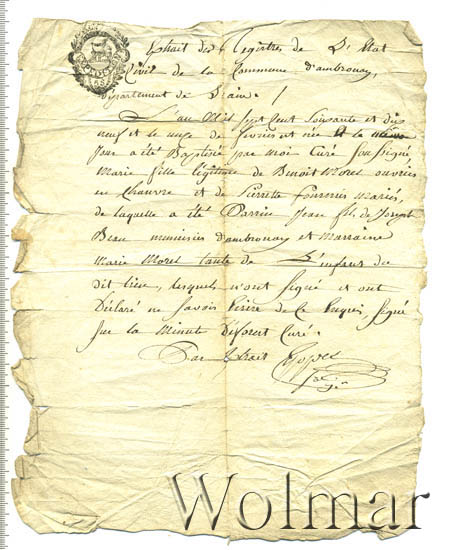 Extrait des Registres de L'Etat
Civil de la Commune d'ambronay,
Département de L'ain
L'an Mil Sept Cent Soixante et dix
neuf et le onze de fevrier est née et le même
Jour a été Baptisée par moi Curé Soussigné
Marie fille légitime de Benoit Morel ouvrier
en Chanvre et de Pierrette fournier Mariés,
de laquelle a été Parrin Jean fils de Joseph
Beau menuisier d'ambronay et Marraine
Marie Morel tante de L'enfant du
dit lieu, lesquels n'ont Signé et ont
Déclaré ne Savoir Ecrire de Ce Requis, Signé
Sur la Minute Curé.
Par Extrait
Wolmar